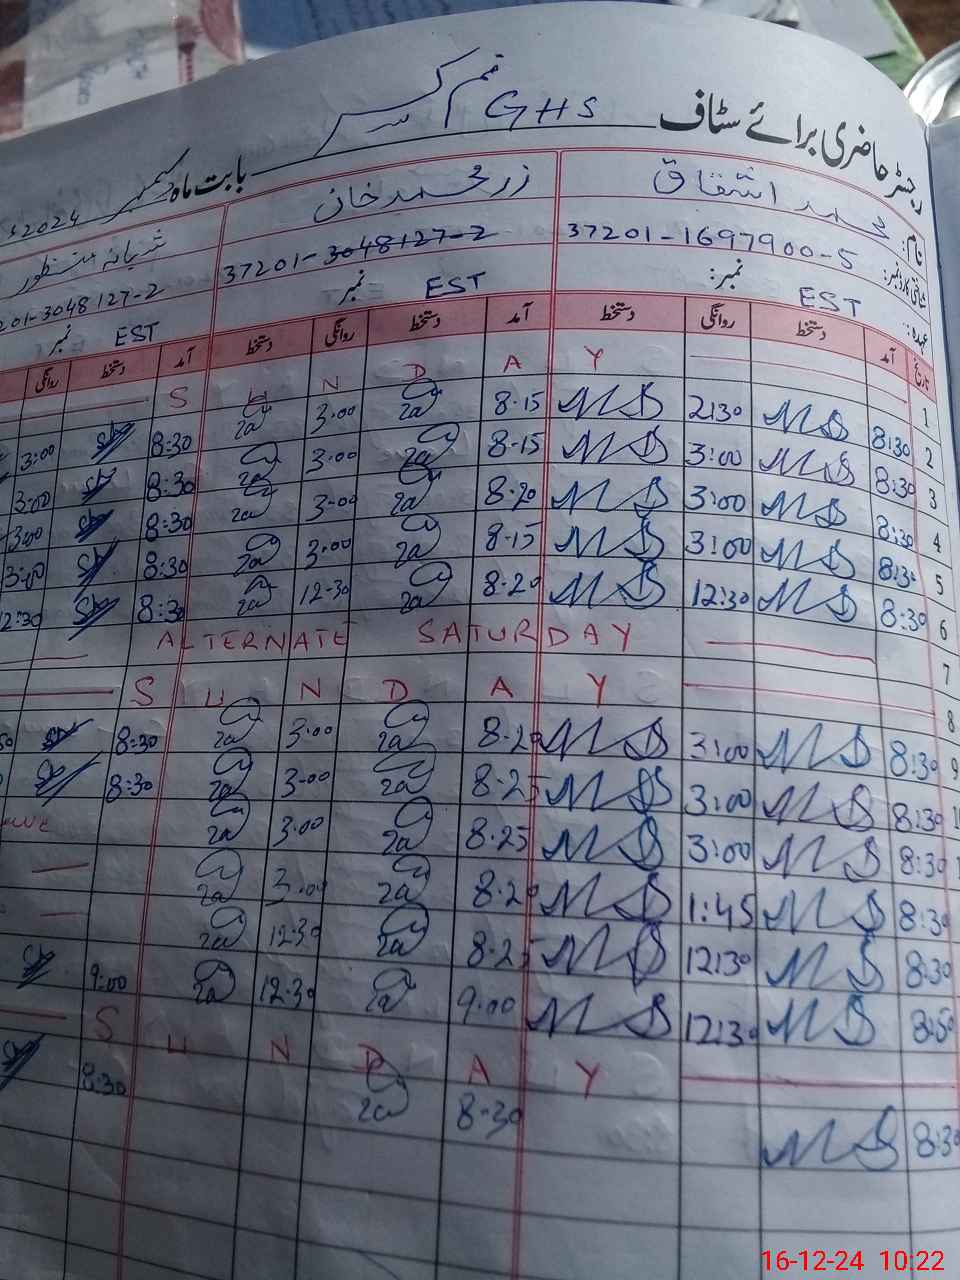 رجسٹر حاضری برائے سٹاف GHS
بابت ماہ دسمبر 2024
نام: محمد اشفاق زر محمد خان شبانہ منظور
شناختی کارڈ نمبر: 37201-1697900-5 37201-3048127-2 201-3048127-2
عہدہ: EST نمبر: EST نمبر EST نمبر
تاریخ آمد دستخط روانگی دستخط آمد دستخط روانگی دستخط آمد دستخط روانگی
1 S U N D A Y
2 8:30 MS 2:30 MS 8-15 3-00 8:30 3:00
3 8:30 MS 3:00 MS 8-15 3-00 8:30 3:00
4 8:30 MS 3:00 MS 8-20 3-00 8:30 3:00
5 8:30 MS 3:00 MS 8-15 3-00 8:30 3:00
6 8:30 MS 12:30 MS 8-20 12-30 8:30 12:30
7 ALTERNATE SATURDAY
8 S U N D A Y
9 8:30 MS 3:00 MS 8-20 3-00 8:30
8:30 MS 3:00 MS 8-25 3-00 8:30
8:30 MS 3:00 MS 8-25 3-00
8:30 MS 1:45 MS 8-20 3-00
8:30 MS 12:30 MS 8-25 12-30
8:50 MS 12:30 MS 9-00 12-30 9:00
S U N D A Y
8:30 MS 8-30 8:30
16-12-24 10:22